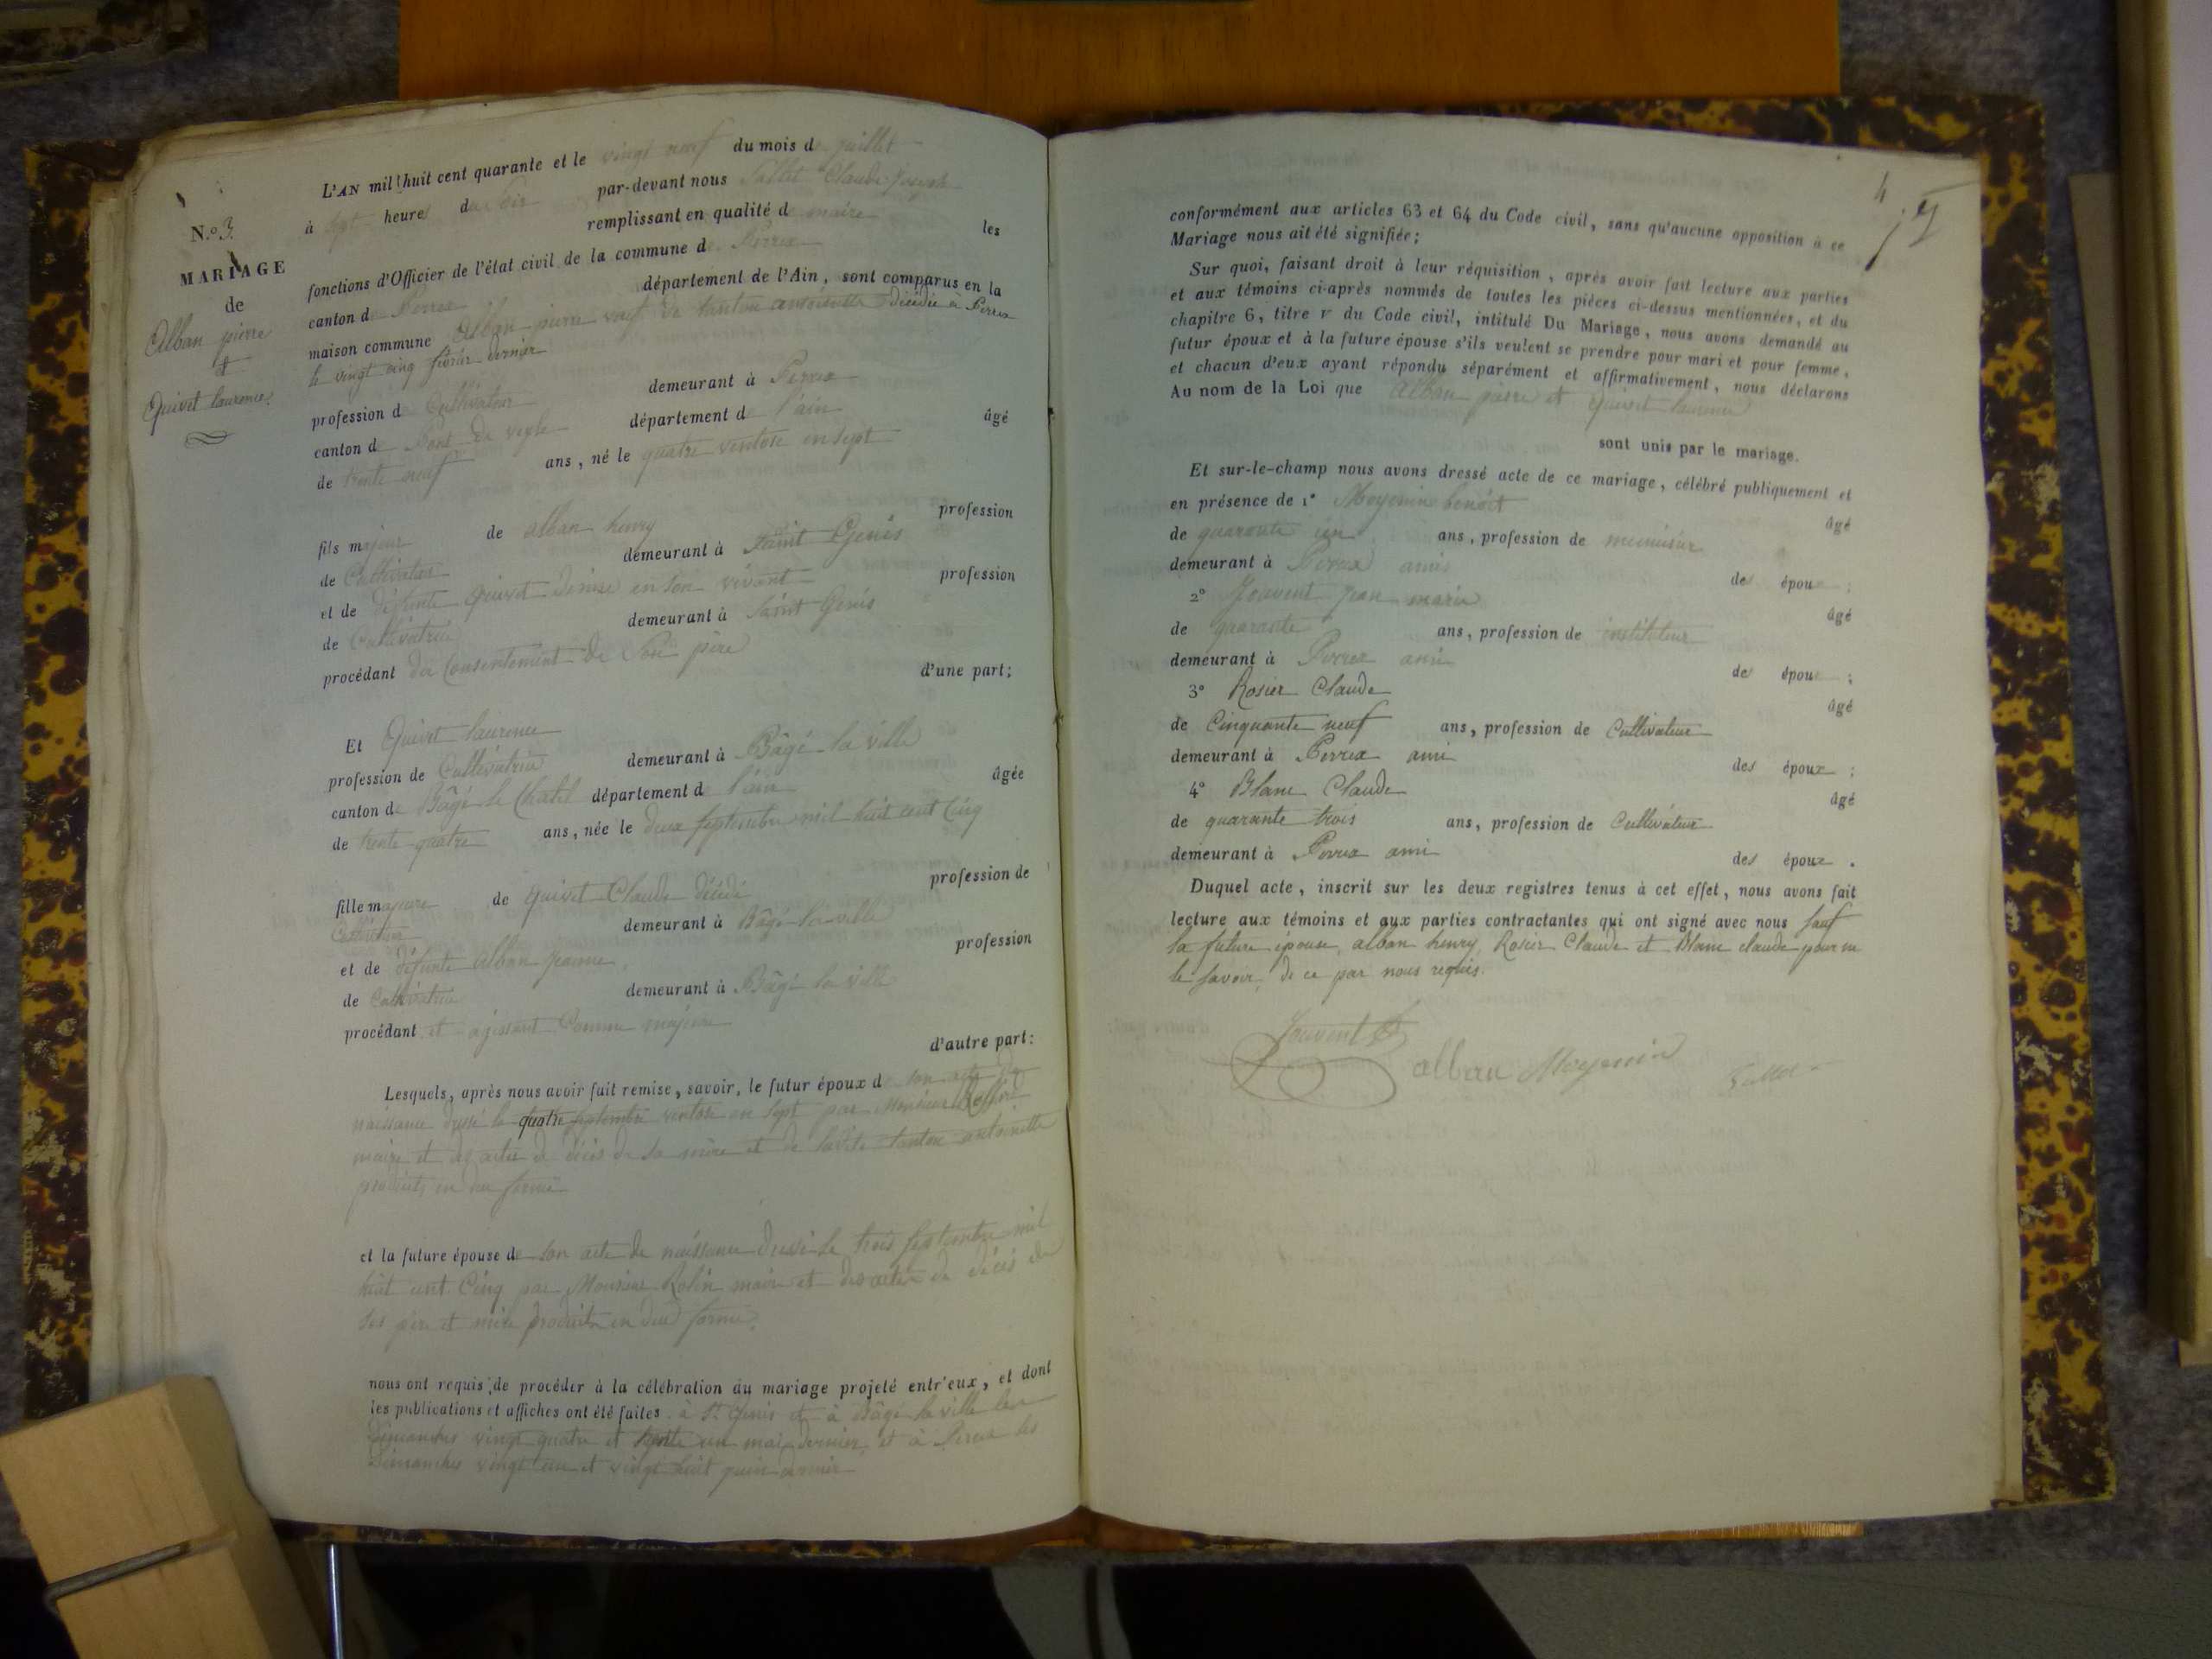 N.º 3.
MARIAGE
de
Alban pierre
&
Quivet laurence
L'AN mil huit cent quarante et le vingt neuf du mois de juillet
à sept heures du soir par-devant nous Sallet Claude Joseph
remplissant en qualité de maire les
fonctions d'Officier de l'état civil de la commune de Perrex
canton de Perrex département de l'Ain, sont comparus en la
maison commune Alban pierre veuf de tanton antoinette décédée à Perrex
le vingt cinq février dernier
profession de Cultivateur demeurant à Perrex
canton de Pont de veyle département de l'ain âgé
de trente neuf ans, né le quatre ventose an sept
fils majeur de alban henry profession
de Cultivateur demeurant à Saint Genis
et de défunte Quivet denise en son vivant profession
de Cultivatrice demeurant à Saint Genis
procédant du Consentement de Son père
d'une part;
Et Quivet laurence
profession de Cultivatrice demeurant à Bâgé la ville
canton de Bâgé le Chatel département de l'ain âgée
de trente quatre ans, née le deux septembre mil huit cent Cinq
fille majeure de quivet Claude décédé profession de
Cultivateur demeurant à Bâgé la ville
et de défunte alban jeanne profession
de Cultivatrice demeurant à Bâgé la ville
procédant et agissant Comme majeure
d'autre part:
Lesquels, après nous avoir fait remise, savoir, le futur époux de son acte de
naissance dressé le quatre septembre ventose an sept par Monsieur
maire et des actes de décès de sa mère et de ladite tanton antoinette
produits en due forme
et la future épouse de son acte de naissance dressé le trois septembre mil
huit cent Cinq par Monsieur Rolin maire et des actes de décès de
ses père et mère produits en due forme.
nous ont requis de procéder à la célébration du mariage projeté entr'eux, et dont
les publications et affiches ont été faites à St Genis et à Bâgé la ville les
Dimanches vingt quatre et trente un mai dernier, et à Perrex les
Dimanches vingt un et vingt huit juin dernier
4
conformément aux articles 63 et 64 du Code civil, sans qu'aucune opposition à ce
Mariage nous ait été signifiée;
Sur quoi, faisant droit à leur réquisition, après avoir fait lecture aux parties
et aux témoins ci-après nommés de toutes les pièces ci-dessus mentionnées, et du
chapitre 6, titre v du Code civil, intitulé Du Mariage, nous avons demandé au
futur époux et à la future épouse s'ils veulent se prendre pour mari et pour femme,
et chacun d'eux ayant répondu séparément et affirmativement, nous déclarons
Au nom de la Loi que Alban pierre et quivet laurence
sont unis par le mariage.
Et sur-le-champ nous avons dressé acte de ce mariage, célébré publiquement et
en présence de 1º Moyemin benoit âgé
de quarante un ans, profession de menuisier
demeurant à Perrex ami des époux;
2º Jouvent jean marie âgé
de quarante ans, profession de instituteur
demeurant à Perrex ami des époux;
3º Rosier Claude âgé
de Cinquante neuf ans, profession de Cultivateur
demeurant à Perrex ami des époux;
4º Blanc Claude âgé
de quarante trois ans, profession de Cultivateur
demeurant à Perrex ami des époux.
Duquel acte, inscrit sur les deux registres tenus à cet effet, nous avons fait
lecture aux témoins et aux parties contractantes qui ont signé avec nous sauf
la future épouse, alban henry, Rosier Claude et Blanc claude pour ne
le savoir, de ce par nous requis.
Jouvent
alban Moyemin Sallet